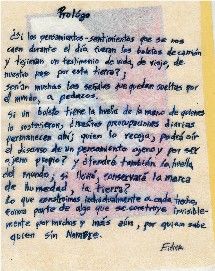 Prólogo
¿Si los pensamientos-sentimientos que se nos
caen durante el día fueran los boletos de camión
y tejieran un testimonio de vida, de viaje, de
nuestro paso por esta tierra?;
serían muchas las señales que quedan sueltas por
el mundo, a pedazos.
Si un boleto tiene la huella de la mano de quienes
lo sostuvieron: ¿nuestros pensamientos diarios
permanecen ahí; quien lo recoja, podrá oír
el discurso de un pensamiento ajeno y por ser
ajeno propio? y ¿tendrá también la huella
del mundo; si llovió, conservará la marca
de humedad la tierra?
Lo que construimos individualmente a cada trecho,
forma parte de algo que se construye invisible-
mente por muchos y más aún, por quien sabe
quien sin Nombre.